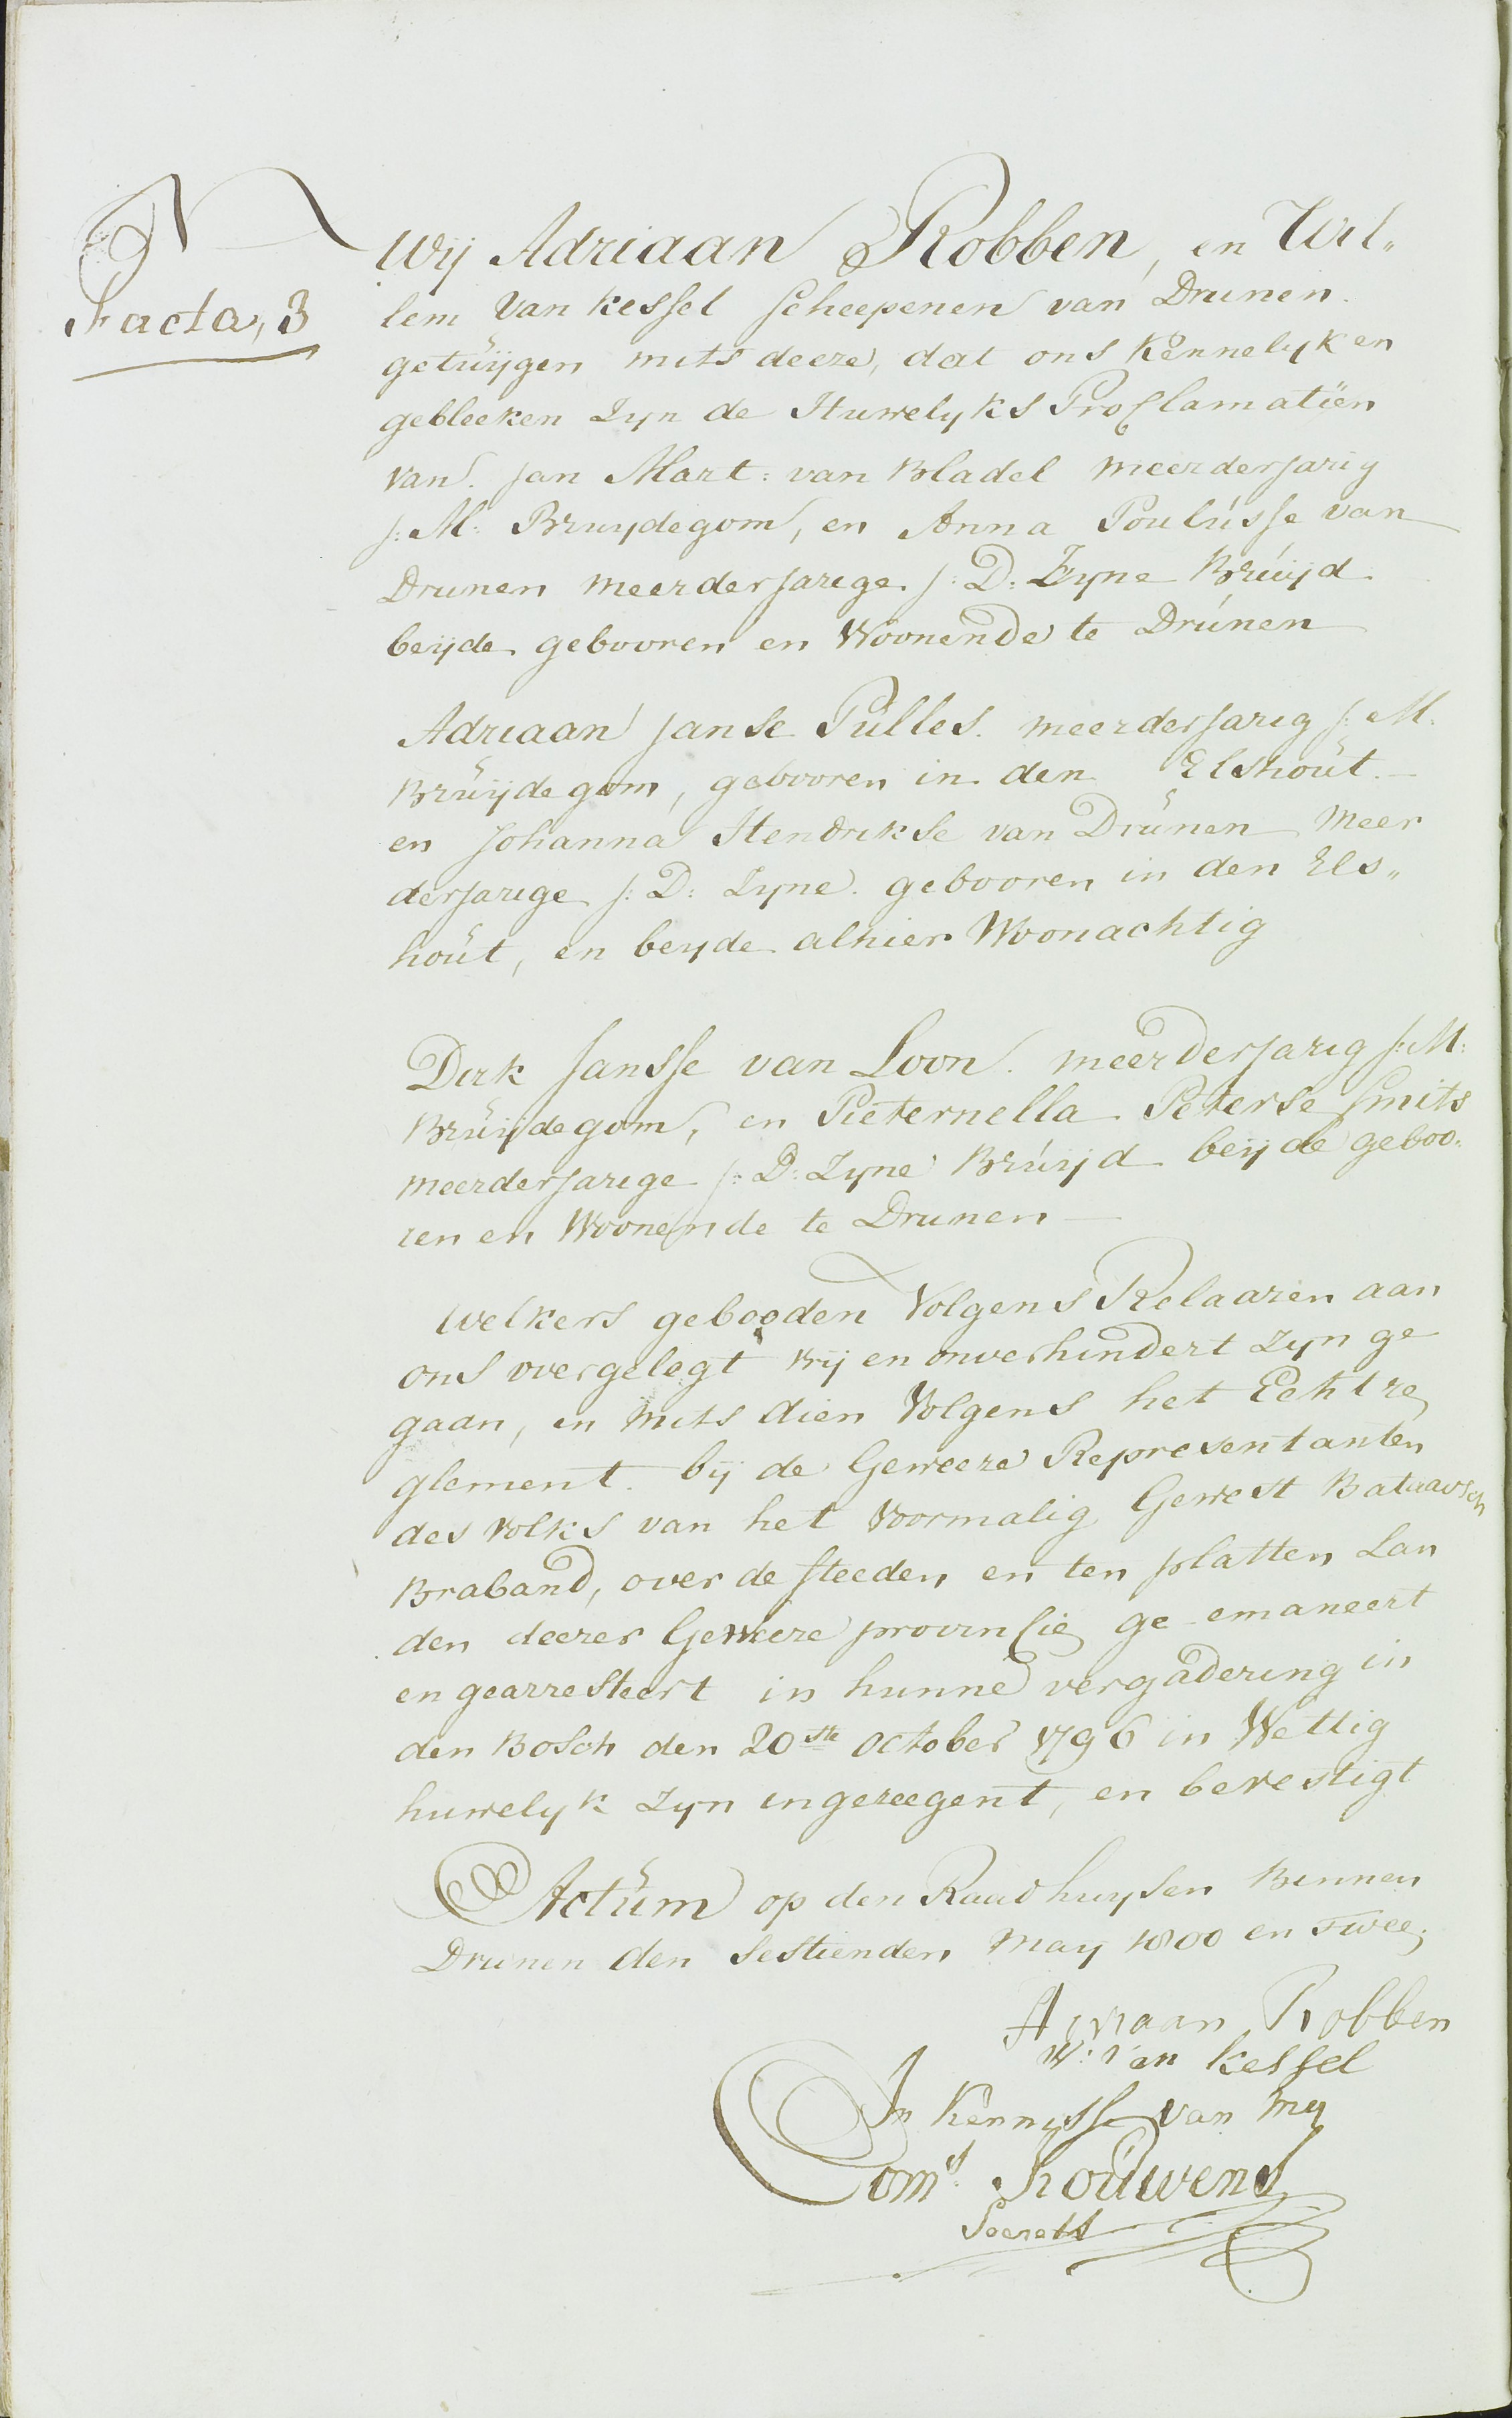 Facta, 3
Wij Adriaan Robben, en Wil„
lem van Kessel scheepenen van Drunen
getuijgen mits deeze, dat ons Kennelyk en
gebleeken Zyn de Huwelyks Proclamatiën
van Jan Mart: van Bladel meerderjarig
J: M: Bruydegom, en Anna Poulusse van
Drunen meerderjarige J: D: Zyne Bruijd
beijde gebooren en Woonende te Drunen
Adriaan Janse Pulles meerderjarig J: M:
Bruijdegom, gebooren in den Elshout
en Johanna Hendrikse van Drunen Meer
derjarige J: D: Zyne gebooren in den Els„
hout, en beyde alhier Woonachtig
Dirk Jansse van Loon meerderjarig J: M:
Bruijdegom, en Pieternella Peterse Smits
meerderjarige J: D: Zyne Bruijd beijde geboo„
ren en Woonende te Drunen
welkers gebooden Volgens Relaazen aan
ons overgelegt vrij en onverhindert zyn ge
gaan, en mits dien Volgens het Echtre
glement bij de Geweeze Representanten
des volks van het Voormalig Gewest Bataavsch
Braband, over de steeden en ten platten Lan
den deezer Geweeze provincie ge emaneert
en gearresteert in hunne vergadering in
den Bosch den 20ste october 1796 in Wettig
huwelyk Zyn ingezeegent, en bevestigt
Actum op den Raadhuysen Binnen
Drunen den sestienden May 1800 en Twee
Adriaan Robben
W: van Kessel
In Kennisse van my
Corns Houwens
Secrets